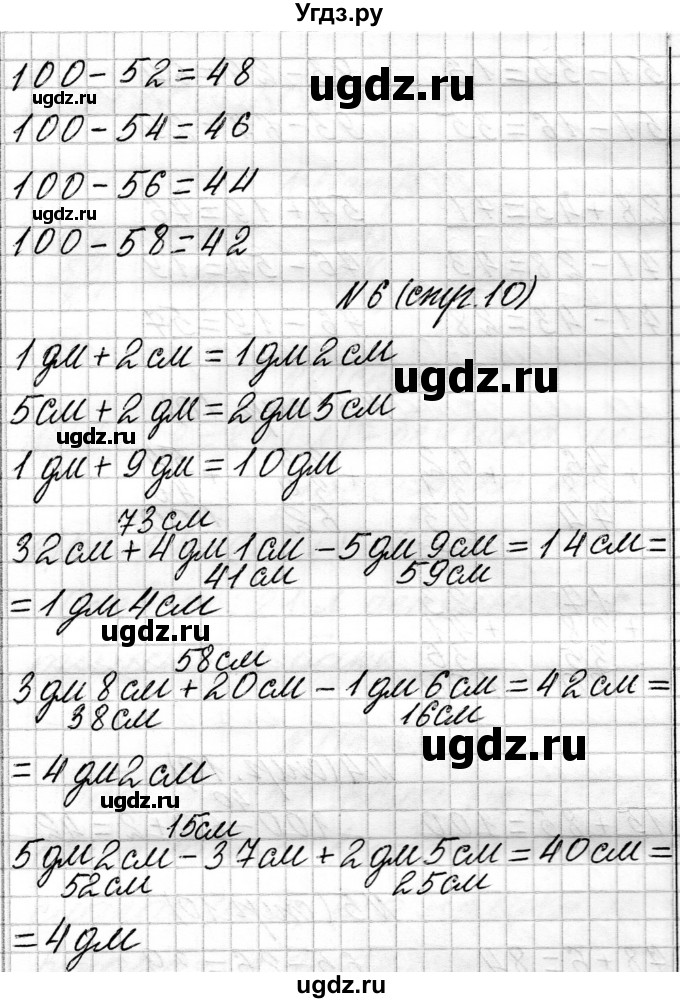 Угдз.ру
100 - 52 = 48
ugdz.ru
ugdz.ru
100 - 54 = 46
100 - 56 = 44
ugdz.ru
100 - 58 = 42
№6 (стр. 10)
1 дм + 2 см = 1 дм 2 см
ugdz.ru
5 см + 2 дм = 2 дм 5 см
ugdz.ru
1 дм + 9 дм = 10 дм
73 см
32 см + 4 дм 1 см - 5 дм 9 см = 14 см =
41 см 59 см
= 1 дм 4 см
ugdz.ru
58 см
3 дм 8 см + 20 см - 1 дм 6 см = 42 см =
38 см 16 см
ugdz.ru
= 4 дм 2 см
ugdz.ru
15 см
5 дм 2 см - 37 см + 2 дм 5 см = 40 см =
52 см 25 см
= 4 дм
ugdz.ru